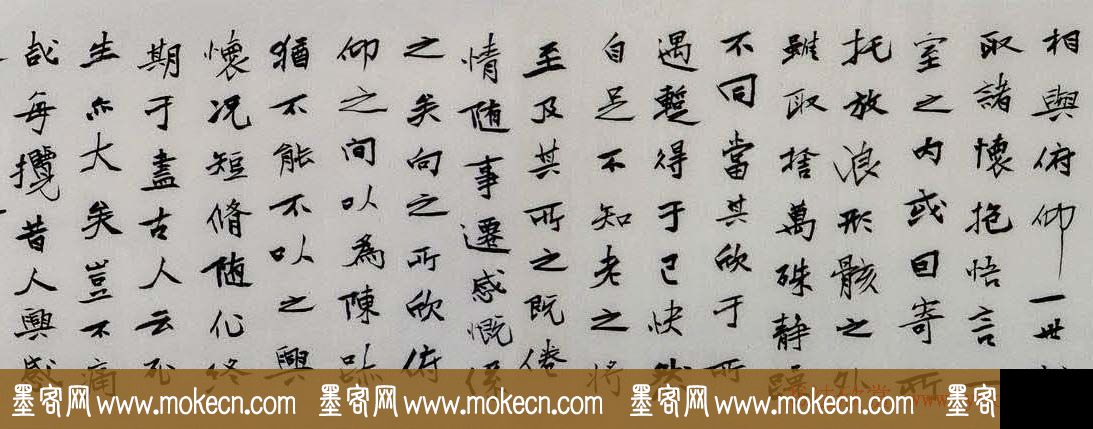 相與俯仰一世
取諸懷抱悟言
室之內或因寄所
托放浪形骸之外
雖取捨萬殊靜躁
不同當其欣于所
遇暫得于己快然
自足不知老之將
至及其所之既倦
情隨事遷感慨係
之矣向之所欣俯
仰之間以為陳跡
猶不能不以之興
懷況短脩隨化終
期于盡古人云死
生亦大矣豈不痛
哉每攬昔人興感
墨客网 www.mokecn.com 墨客网 www.mokecn.com 墨客网 www.mokecn.com 墨客